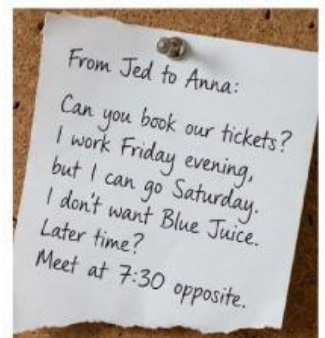 From Jed to Anna:
Can you book our tickets?
I work Friday evening,
but I can go Saturday.
I don't want Blue Juice.
Later time?
Meet at 7:30 opposite.